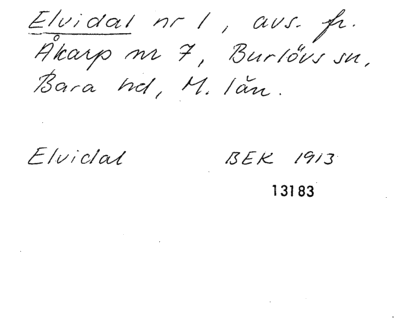 Elvidal nr 1, avs. fr.
Åkarp nr 7, Burlövs sn,
Bara hd, M. län.
Elvidal BEK 1913
13183